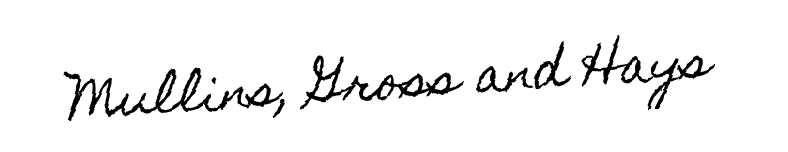 Mullins, Gross and Hays